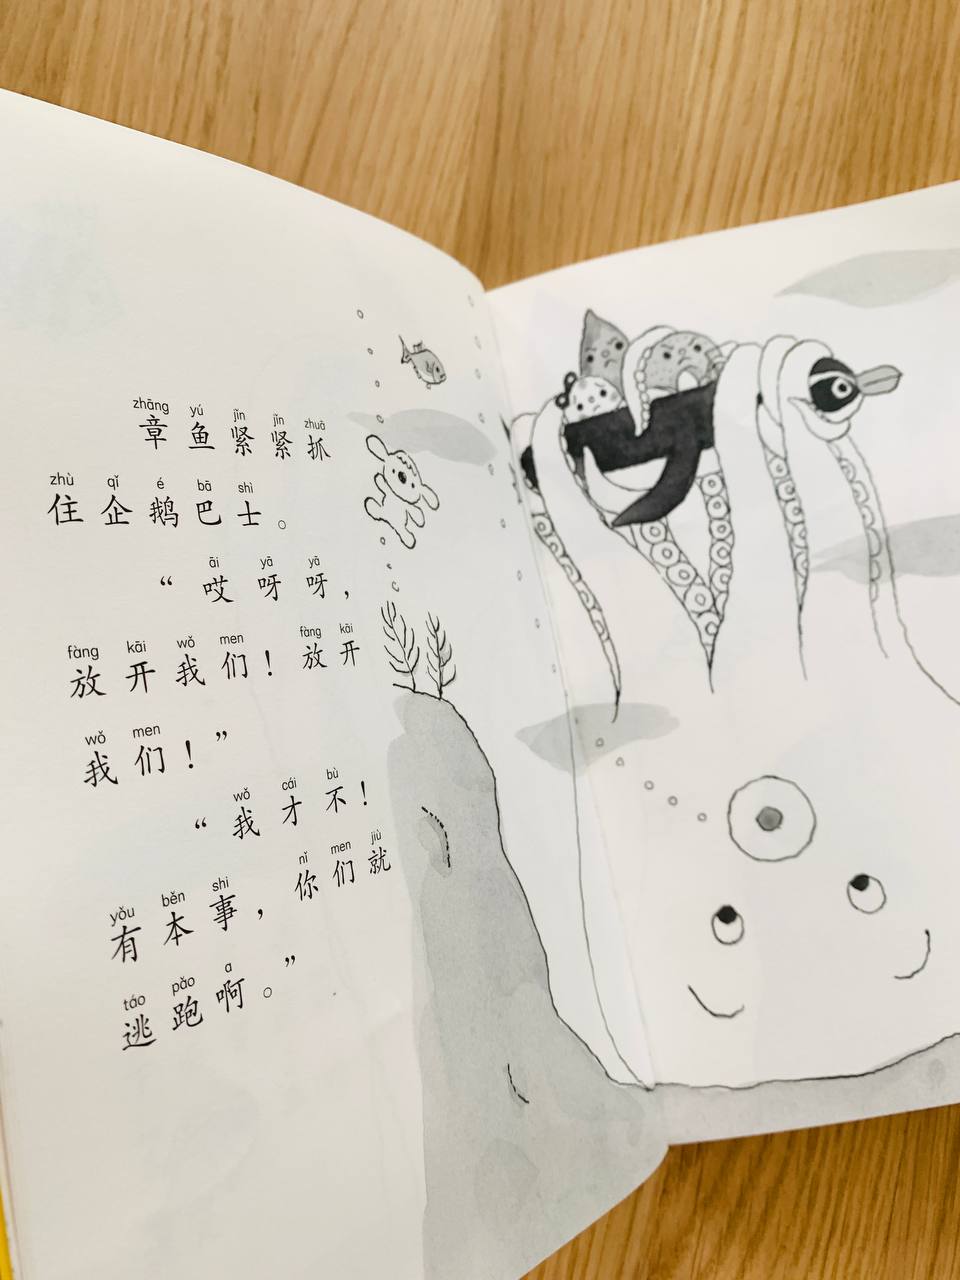 zhāng yú jǐn jǐn zhuā
章鱼紧紧抓
zhù qǐ é bā shì
住企鹅巴士。
āi yā yā
“哎呀呀，
fàng kāi wǒ men fàng kāi
放开我们！放开
wǒ men
我们！”
wǒ cái bù
“我才不！
yǒu běn shi nǐ men jiù
有本事，你们就
táo pǎo a
逃跑啊。”